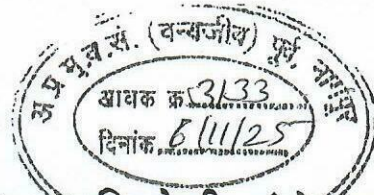 अ.प्र.मु.व.सं. (वन्यजीव) पुर्व, नागपूर
आवक क्र. 3133
दिनांक 6/11/25